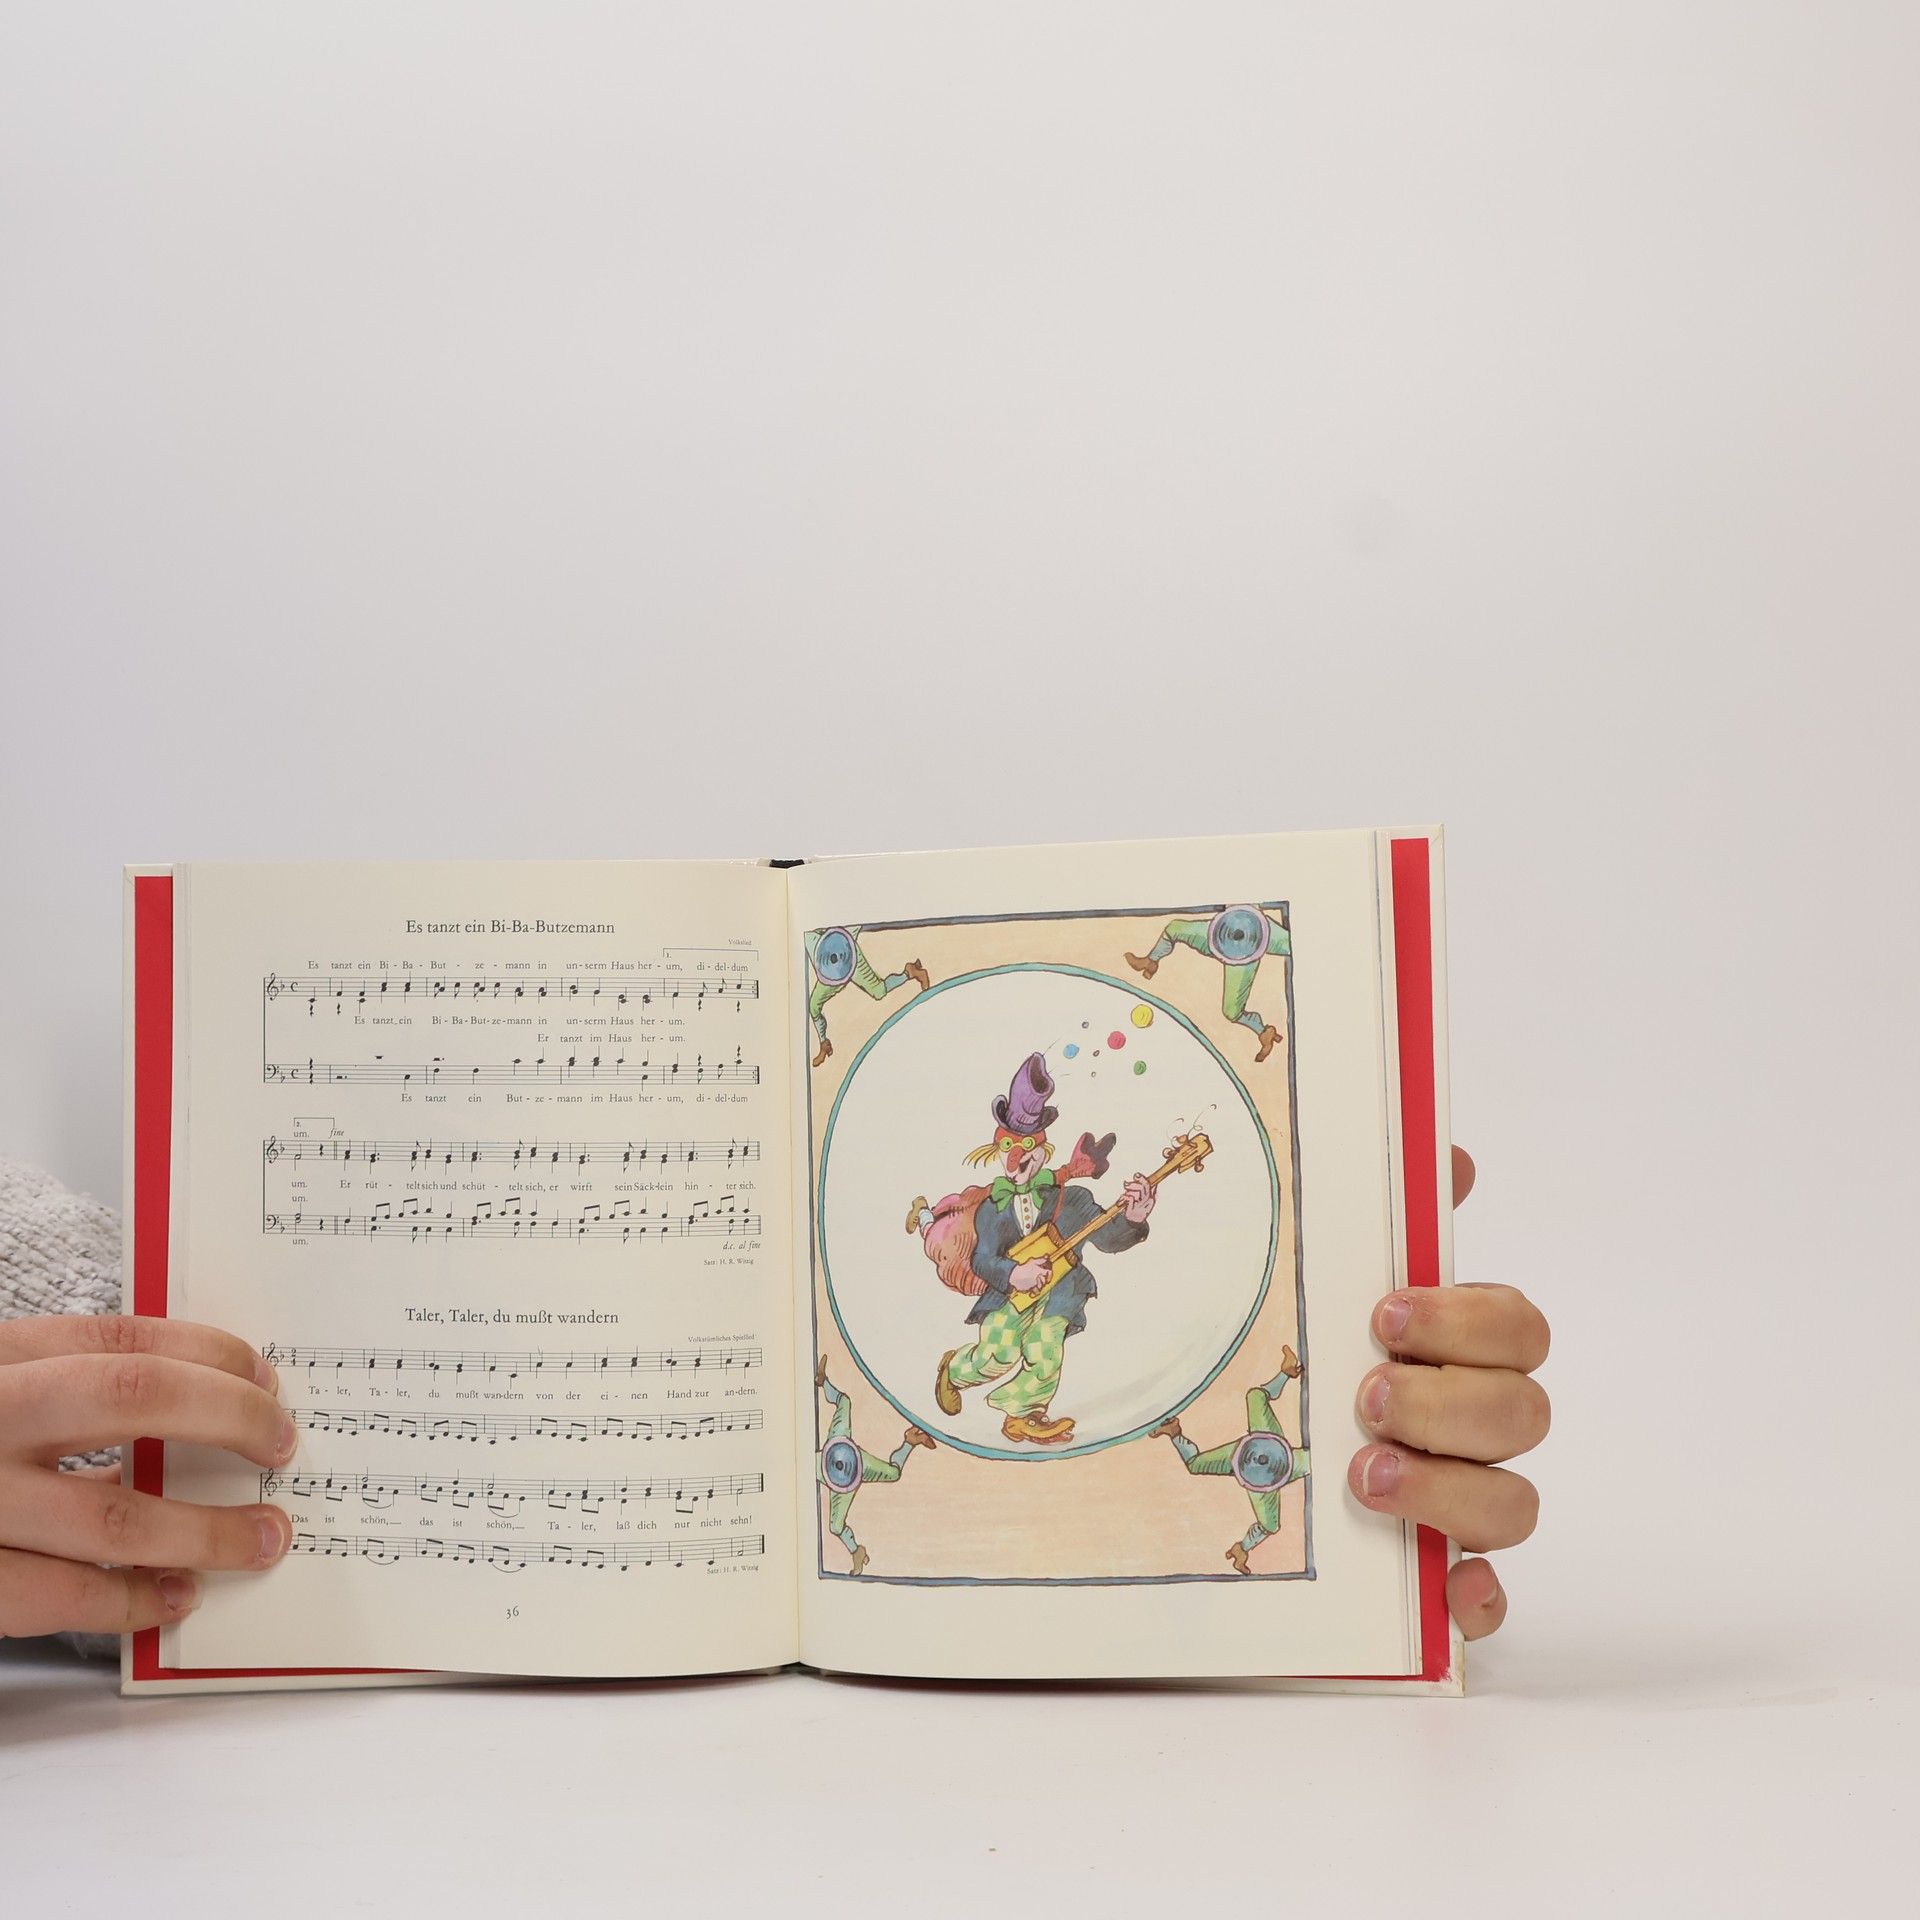 Es tanzt ein Bi-Ba-Butzemann
Volkslied
1.
Es tanzt ein Bi - Ba - But - ze - mann in un - serm Haus her - um, di - del - dum
Es tanzt ein Bi - Ba - But - ze - mann in un - serm Haus her - um.
Er tanzt im Haus her - um.
Es tanzt ein But - ze - mann im Haus her - um, di - del - dum
2.
um. fine
um. Er rüt - telt sich und schüt - telt sich, er wirft sein Säck - lein hin - ter sich.
um.
um.
d.c. al fine
Satz: H. R. Witzig
Taler, Taler, du mußt wandern
Volkstümliches Spiellied
Ta - ler, Ta - ler, du mußt wan-dern von der ei - nen Hand zur an-dern.
Das ist schön, das ist schön, Ta - ler, laß dich nur nicht sehn!
Satz: H. R. Witzig
36